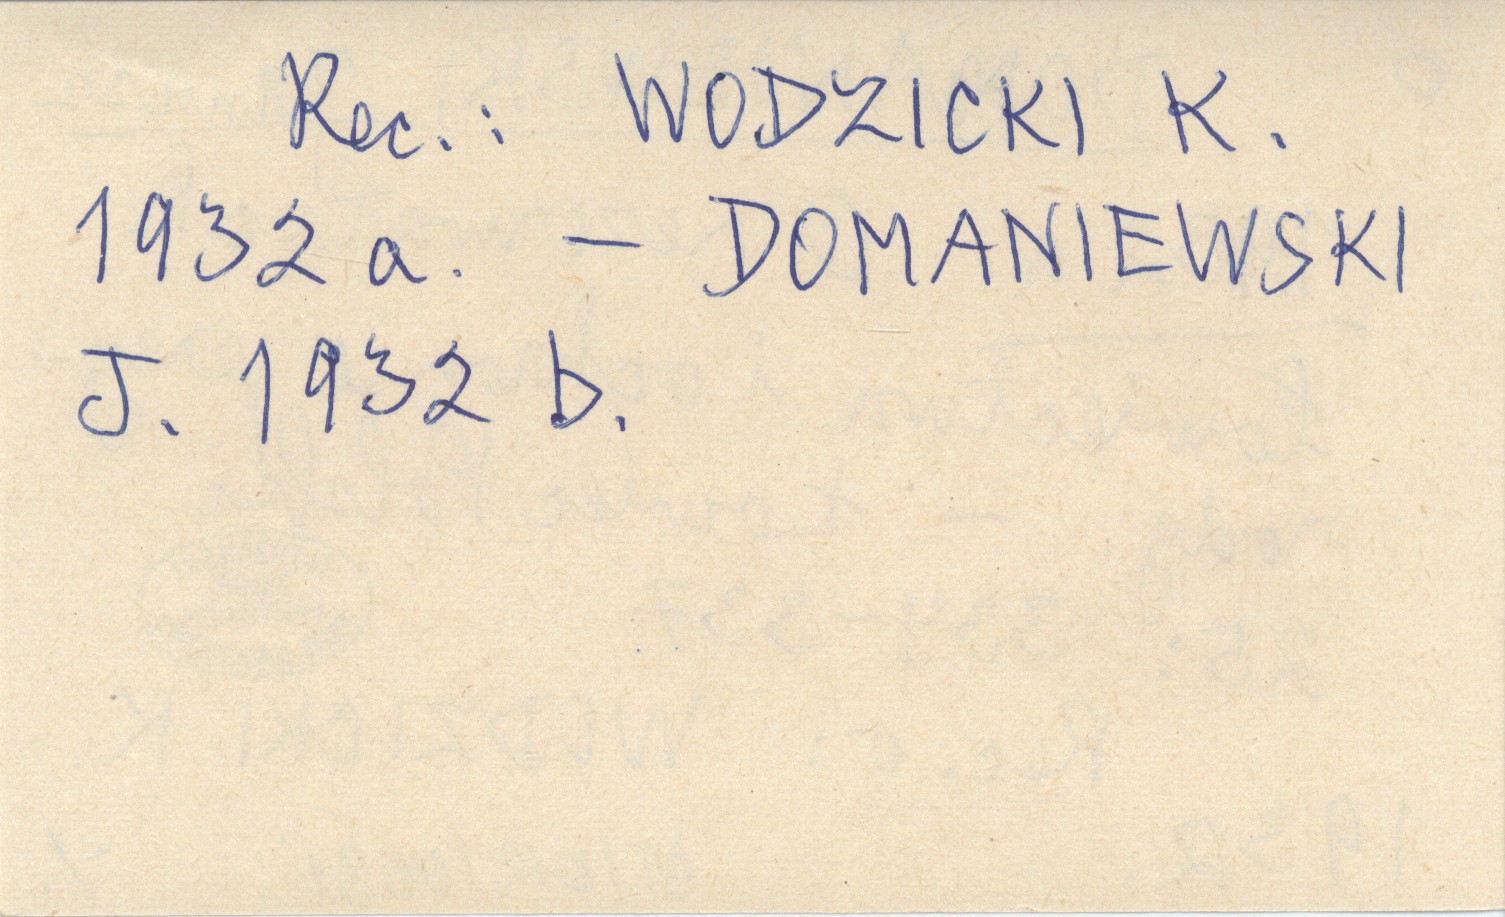 Rec.: WODZICKI K.
1932 a. — DOMANIEWSKI
J. 1932 b.